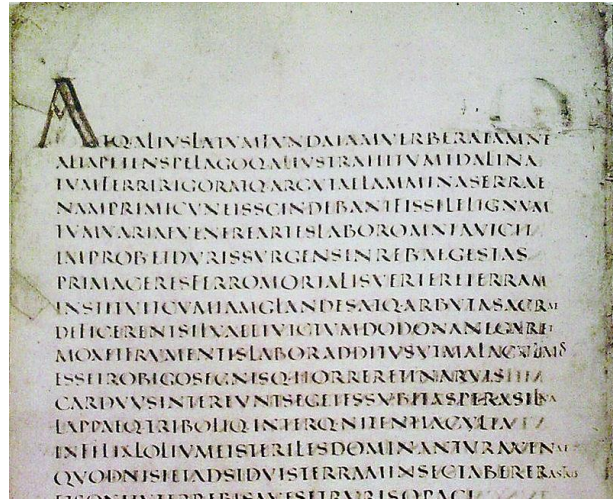 ATQ·ALIVSLATVMFVNDAIAMVERBERATAMNE
ALTAPETENSPELAGOQ·ALIVSTRAHITVMIDALINA
TVMFERRIRIGORATQ·ARGVTAELAMMINASERRAE
NAMPRIMICVNEISSCINDEBANTFISSILELIGNVM
TVMVARIAEVENEREARTESLABOROMNIAVICIT
IMPROBETDVRISSVRGENSINREBVSEGESTAS
PRIMACERESFERROMORTALISVERTERETERRAM
INSTITVITCVMIAMGLANDESATQ·ARBVTASACRAE
DEFICERENTSILVAEETVICTVMDODONANEGARET
MOXETFRVMENTISLABORADDITVSVTMALACVLMOS
ESSETROBIGOSEGNISQ·HORRERETINARVIS
CARDVVSINTEREVNTSEGETESSVBITASPERASILVA
LAPPAEQ·TRIBOLIQ·INTERQ·NITENTIACVLTA
INFELIXLOLIVMETSTERILESDOMINANTVRAVENAE
QVODNISIETADSIDVISTERRAMINSECTABERERASTRIS
ETSONITVTERREBISAVESETRVRISOPACI